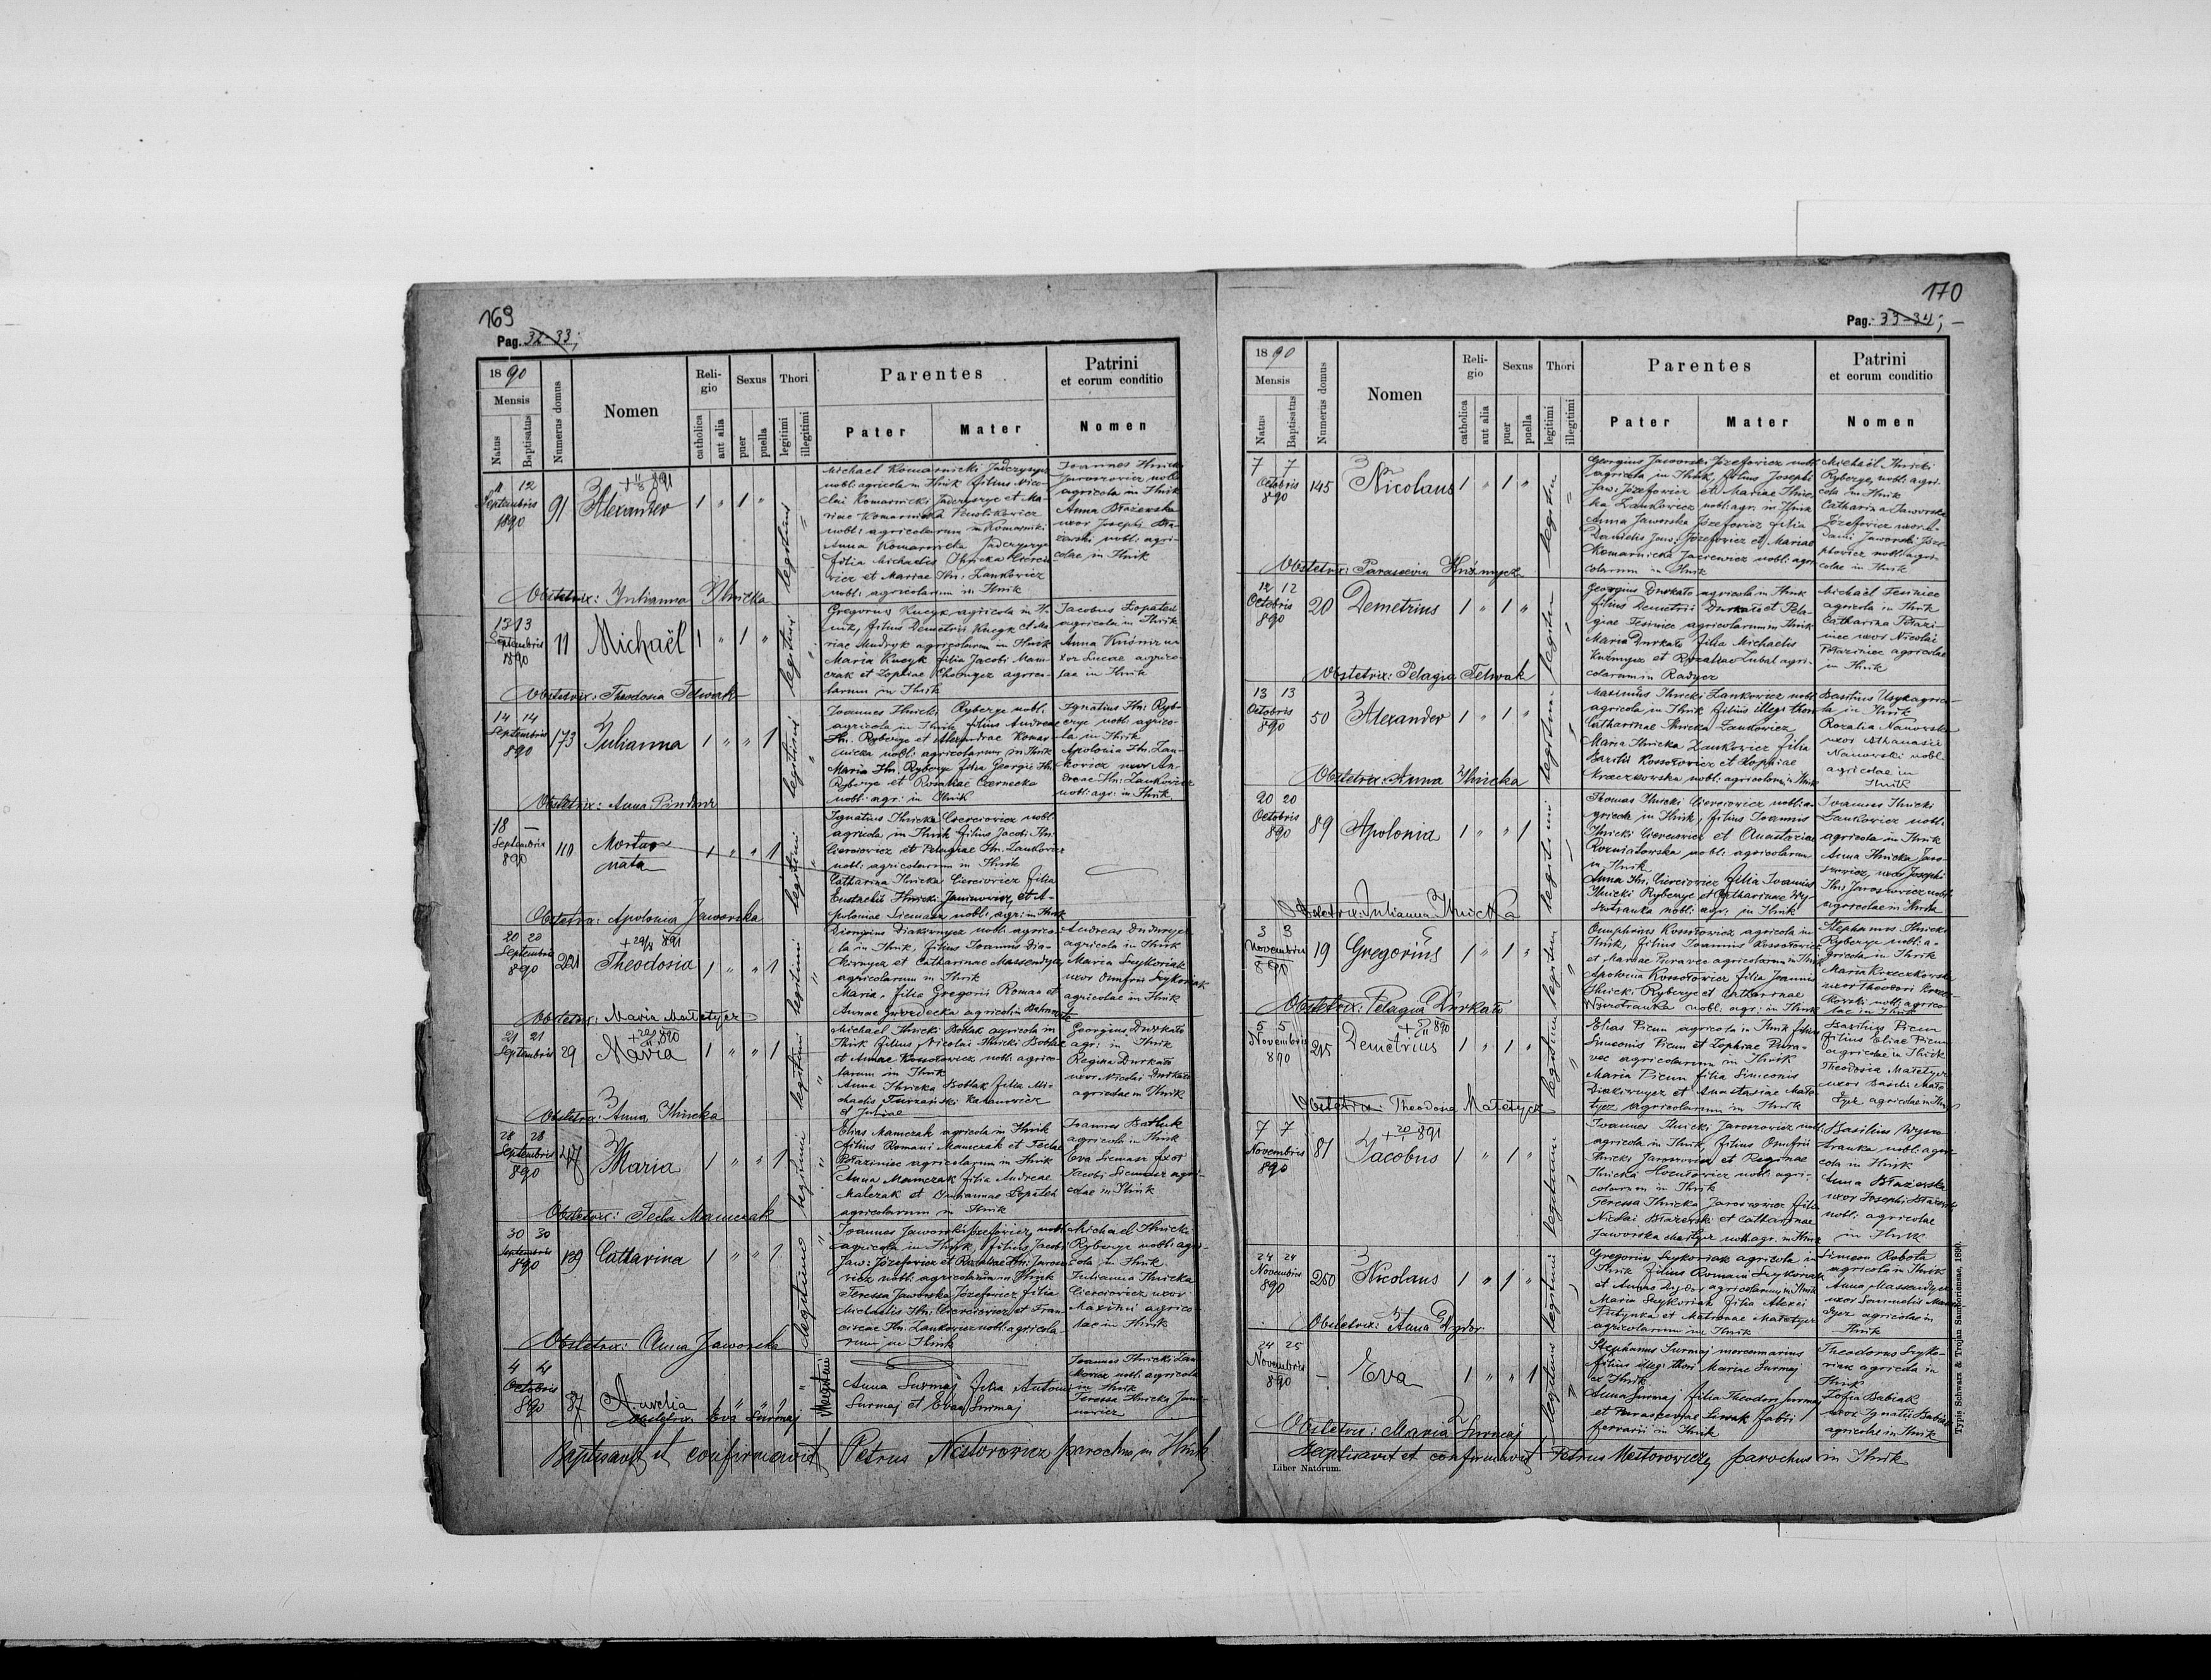 169
Pag. 32-33;
1890
Mensis
Natus
Baptisatus
Numerus domus
Nomen
Religio
catholica
aut alia
Sexus
puer
puella
Thori
legitimi
illegitimi
Parentes
Pater
Mater
Patrini
et eorum conditio
Nomen
11 12
Septembris
1890
91
Alexander
1 " 1 "
legitimi
Michael Komarnicki
nobl. agricola in Ilnik filius Nico-
lai Komarnicki et Ma-
riae Komarnicka
nobl: agricolarum in Komarniki
Anna Komarnicka
filia Michaelis Ilnicka Ciercio-
wicz et Mariae Iln: Zankowicz
nobl: agricolarum in Ilnik
Joannes Ilnicki
Jaroszowicz nobl.
agricola in Ilnik
Anna Błażewska
uxor Josephi Bła-
żewski nobl: agri-
colae in Ilnik
Obstetrix: Julianna Ilnicka
13 13
Septembris
1890
11
Michaël
1 " 1 "
legitimi
Gregorius Kucyk agricola in Il-
nik, filius Demetrii Kucyk et Ma-
riae Mudryk agricolarum in Ilnik
Maria Kucyk filia Jacobi Mam-
czak et Zophiae agrico-
larum in Ilnik
Jacobus Łopatch
agricola in Ilnik
Anna
uxor Lucae agrico-
lae in Ilnik
Obstetrix: Theodosia Fetwak
14 14
Septembris
890
173
Julianna
1 " " 1
legitimi
Joannes Ilnicki Ryberye nobl.
agricola in Ilnik filius Andreae
Iln. Ryberye et Alexandrae Komar-
nicka nobl: agricolarum in Ilnik
Maria Iln. Ryberye filia Georgii Iln.
Ryberye et Rosaliae Czernecka
nobl: agr: in Ilnik
Ignatius Iln: Ryb-
erye nobl: agrico-
la in Ilnik
Apolonia Iln. Zan-
kowicz uxor An-
dreae Iln: Zankowicz
nobl: agr: in Ilnik
Obstetrix: Anna
18 –
Septembris
890
110
Mortua
nata
1 " " 1
legitimi
Ignatius Ilnicki Cierciowicz nobl.
agricola in Ilnik filius Jacobi Iln:
Cierciowicz et Pelagiae Iln. Zankowicz
nobl: agricolarum in Ilnik
Catharina Ilnicka Cierciowicz filia
Eustachii Ilnicki et A-
poloniae Siemasz nobl: agr: in Ilnik
Obstetrix: Apolonia Jaworska
20 20
Septembris
890
221
+ 29/8 891
Theodosia
1 " " 1
legitimi
Dionysius Diakivnycz nobl. agrico-
la in Ilnik, filius Joannis Dia-
kivnycz et Catharinae Massendycz
agricolarum in Ilnik
Maria, filia Gregorii Roman et
Annae
Andreas
agricola in Ilnik
Maria Szykoriak
uxor Onufrii Szykoriak
agricolae in Ilnik
Obstetrix: Maria Małetycz
21 21
Septembris
29
Maria
1 " " 1
legitimi
Michael Ilnicki Boblak agricola in
Ilnik filius Nicolai Ilnicki Boblak
et Annae Kossołowicz nobl: agrico-
larum in Ilnik
Anna Ilnicka Boblak filia Mi-
chaelis Turzański
et Juliae
Georgius Durkało
agr: in Ilnik
Regina Durkało
uxor Nicolai Durkało
agricolae in Ilnik
Obstetrix: Anna Ilnicka
28 28
Septembris
890
Maria
1 " " 1
legitimi
Elias Mamczak agricola in Ilnik
filius Romani Mamczak et Teclae
Płaziniec agricolarum in Ilnik
Anna Mamczak filia Andreae
Malczak et Juliannae Łopatch
agricolarum in Ilnik
Joannes
agricola in Ilnik
Eva Siemasz uxor
Jacobi Siemasz agri-
colae in Ilnik
Obstetrix: Tecla Mamczak
30 30
Septembris
890
139
Catharina
1 " " 1
legitimi
Joannes Jaworski Józefowicz nobl:
agricola in Ilnik, filius Jacobi
Jaw: Józefowicz et Rosaliae Iln: Jaroszo-
wicz nobl: agricolarum in Ilnik
Teressa Jaworska Józefowicz filia
Michaelis Iln: Cierciowicz et Fran-
ciscae Iln. Zankowicz nobl: agricola-
rum in Ilnik
Michael Ilnicki
Ryberye nobl: agri-
cola in Ilnik
Julianna Ilnicka
Cierciowicz uxor
Maximi agrico-
lae in Ilnik
Obstetrix: Anna Jaworska
4 4
Octobris
890
87
Aurelia
illegitimi
Anna Surmaj filia Antonii
Surmaj et Evae Surmaj
Joannes Ilnicki Zan-
kowicz nobl: agricola
in Ilnik
Teressa Ilnicka
Obstetrix: Eva Surmaj
Baptisavit et confirmavit Petrus Nestorowicz parochus in Ilnik
170
Pag. 33-34;
1890
Mensis
Natus
Baptisatus
Numerus domus
Nomen
Religio
catholica
aut alia
Sexus
puer
puella
Thori
legitimi
illegitimi
Parentes
Pater
Mater
Patrini
et eorum conditio
Nomen
7 7
Octobris
890
145
Nicolaus
1 " 1 "
legitimi
Georgius Jaworski Józefowicz nobl:
agricola in Ilnik, filius Josephi
Jaw: Józefowicz et Mariae Ilnic-
ka Zankowicz nobl: agr: in Ilnik
Anna Jaworska Józefowicz filia
Danielis Jaw: Józefowicz et Mariae
Komarnicka nobl: agri-
colarum in Ilnik
Michaël Ilnicki
Ryberye, nobl: agri-
cola in Ilnik
Catharina Jaworska
Józefowicz uxor A-
dami Jaworski Józe-
fowicz nobl: agri-
colae in Ilnik
Obstetrix: Parascevia
12 12
Octobris
890
20
Demetrius
1 " 1 "
legitimi
Georgius Durkało agricola in Ilnik
filius Demetrii Durkało et Pela-
giae Fesiniec agricolarum in Ilnik
Maria Durkało filia Michaelis
Kuźmycz et Rozaliae Zubal agri-
colarum in Radycz
Michaël Fesiniec
agricola in Ilnik
Catharina Płazi-
niec uxor Nicolai
Płaziniec agricolae
in Ilnik
Obstetrix: Pelagia Fetwak
13 13
Octobris
890
50
Alexander
1 " 1 "
legitimi
Maximus Ilnicki Zankowicz nobl.
agricola in Ilnik filius illeg: thori
Catharinae Ilnicka Zankowicz
Maria Ilnicka Zankowicz filia
Basilii Kossołowicz et Zophiae
Kraczkowska nobl: agricolarum in Ilnik
Basilius Usyk agrico-
la in Ilnik
Rozalia Nanowska
uxor Athanasii
Nanowski nobl.
agricolae in
Ilnik
Obstetrix: Anna Ilnicka
20 20
Octobris
890
89
Apolonia
1 " " 1
legitimi
Thomas Ilnicki Cierciowicz nobl: a-
gricola in Ilnik, filius Joannis
Ilnicki Cierciowicz et Anastasiae
Rozniatowska nobl: agricolarum
in Ilnik
Anna Iln. Cierciowicz filia Joannis
Ilnicki Ryberye et Catharinae Wy-
soczanka nobl: agr: in Ilnik
Joannes Ilnicki
Zankowicz nobl:
agricola in Ilnik
Anna Ilnicka Jaro-
szowicz, uxor Josephi
Iln: Jaroszowicz nobl:
agricolae in Ilnik
Obstetrix: Julianna Ilnicka
3 3
Novembris
890
19
Gregorius
1 " 1 "
legitimi
Onuphrius Kossołowicz agricola in
Ilnik, filius Joannis Kossołowicz
et Mariae Puravec agricolarum in Ilnik
Apolonia Kossołowicz filia Joannis
Ilnicki Ryberye et Catharinae
Wysoczanka nobl: agr: in Ilnik
Stephanus Ilnicki
Ryberye nobl: a-
gricola in Ilnik
Maria Krzeczkowska
uxor Theodori Krzecz-
kowski nobl: agrico-
lae in Ilnik
Obstetrix: Pelagia Durkało
5 5
Novembris
890
215
Demetrius
1 " 1 "
legitimi
Elias Picun agricola in Ilnik filius
Simeonis Picun et Zophiae Pura-
vec agricolarum in Ilnik
Maria Picun filia Simeonis
Diakivnycz et Anastasiae Małe-
tycz agricolarum in Ilnik
Basilius Picun
filius Eliae Picun
agricolae in Ilnik
Theodosia Małetycz
uxor Basilii Małe-
tycz agricolae in Ilnik
Obstetrix: Theodosia Małetycz
7 7
Novembris
890
81
+ 20/1 891
Jacobus
1 " 1 "
legitimi
Joannes Ilnicki Jaroszowicz nobl:
agricola in Ilnik, filius Onufrii
Ilnicki Jaroszowicz et Reginae
Ilnicka nobl: agri-
colarum in Ilnik
Teressa Ilnicka Jaroszowicz filia
Nicolai Błażewski et Catharinae
Jaworska nobl: agr: in Ilnik
Basilius Wyso-
czanka nobl: agri-
cola in Ilnik
Anna Błażewska
uxor Josephi Błażewski
nobl: agricolae
in Ilnik
24 24
Novembris
890
250
Nicolaus
1 " 1 "
legitimi
Gregorius Szykoriak agricola in
Ilnik filius Romani Szykoriak
et Annae Dydor agricolarum in Ilnik
Maria Szykoriak filia Alexii
et Matronae Małetycz
agricolarum in Ilnik
Simeon Robota
agricola in Ilnik
Anna Massendycz
uxor Samuelis Massen-
dycz agricolae in
Ilnik
Obstetrix: Anna Dydor
24 25
Novembris
890
–
Eva
1 " " 1
legitimi
Stephanus Surmaj mercennarius
filius illeg: thori Mariae Surmaj
ex Ilnik
Anna Surmaj filia Theodori Surmaj
et Parasceviae fabri
ferrarii in Ilnik
Theodorus Szyko-
riak agricola in
Ilnik
Zofia Babiak
uxor Ignatii Babiak
agricolae in Ilnik
Obstetrix: Maria Surmaj
Baptisavit et confirmavit Petrus Nestorowicz parochus in Ilnik
Liber Natorum.
Typis Schwarz & Trojan Samboriensae, 1890.